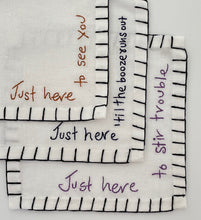 Just here
to see you
Just here
'til the booze runs out
Just here
to stir trouble